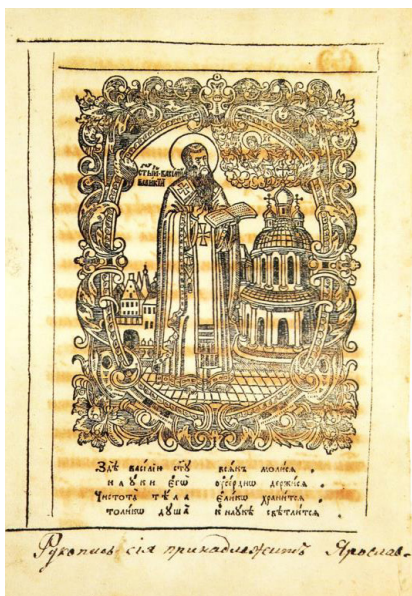 СТЫЙ ВАСИЛІЙ
ВЕЛИКІЙ
Здѣ василію сту всякъ молися .
науки егѡ ѹсердно держися .
Чистота тѣла Еликѡ хранится .
толикѡ душа к науке свѣтлится .
Рукопись сія принадлежитъ Ярослав-